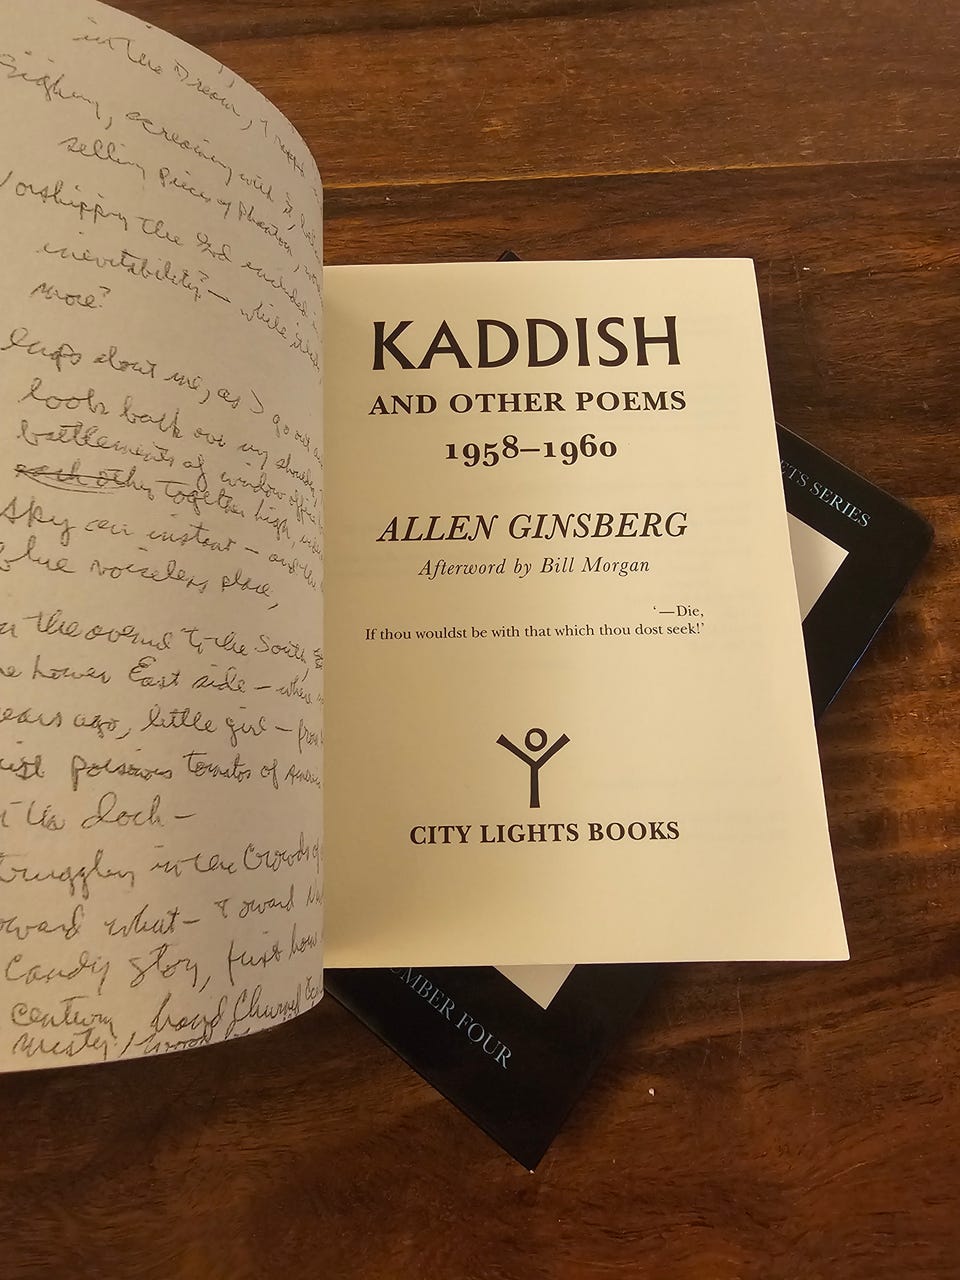 in the Dream,
Sighing, screaming with it,
selling pieces of Phantom,
Worshipping the God included
inevitability?— while it
more?
leaps about me, as I go out
look back over my shoulder,
battlements of window office
each other together high,
sky an instant — and the
blue voiceless place,
the avenue to the South,
Lower East side — where
years ago, little girl — from
poisonous tomatos of America
the dock —
struggling in the Crowds of
toward what — toward
Candy story, first home
century, hand Churned
KADDISH
AND OTHER POEMS
1958–1960
ALLEN GINSBERG
Afterword by Bill Morgan
‘—Die,
If thou wouldst be with that which thou dost seek!’
CITY LIGHTS BOOKS
ETS SERIES
UMBER FOUR